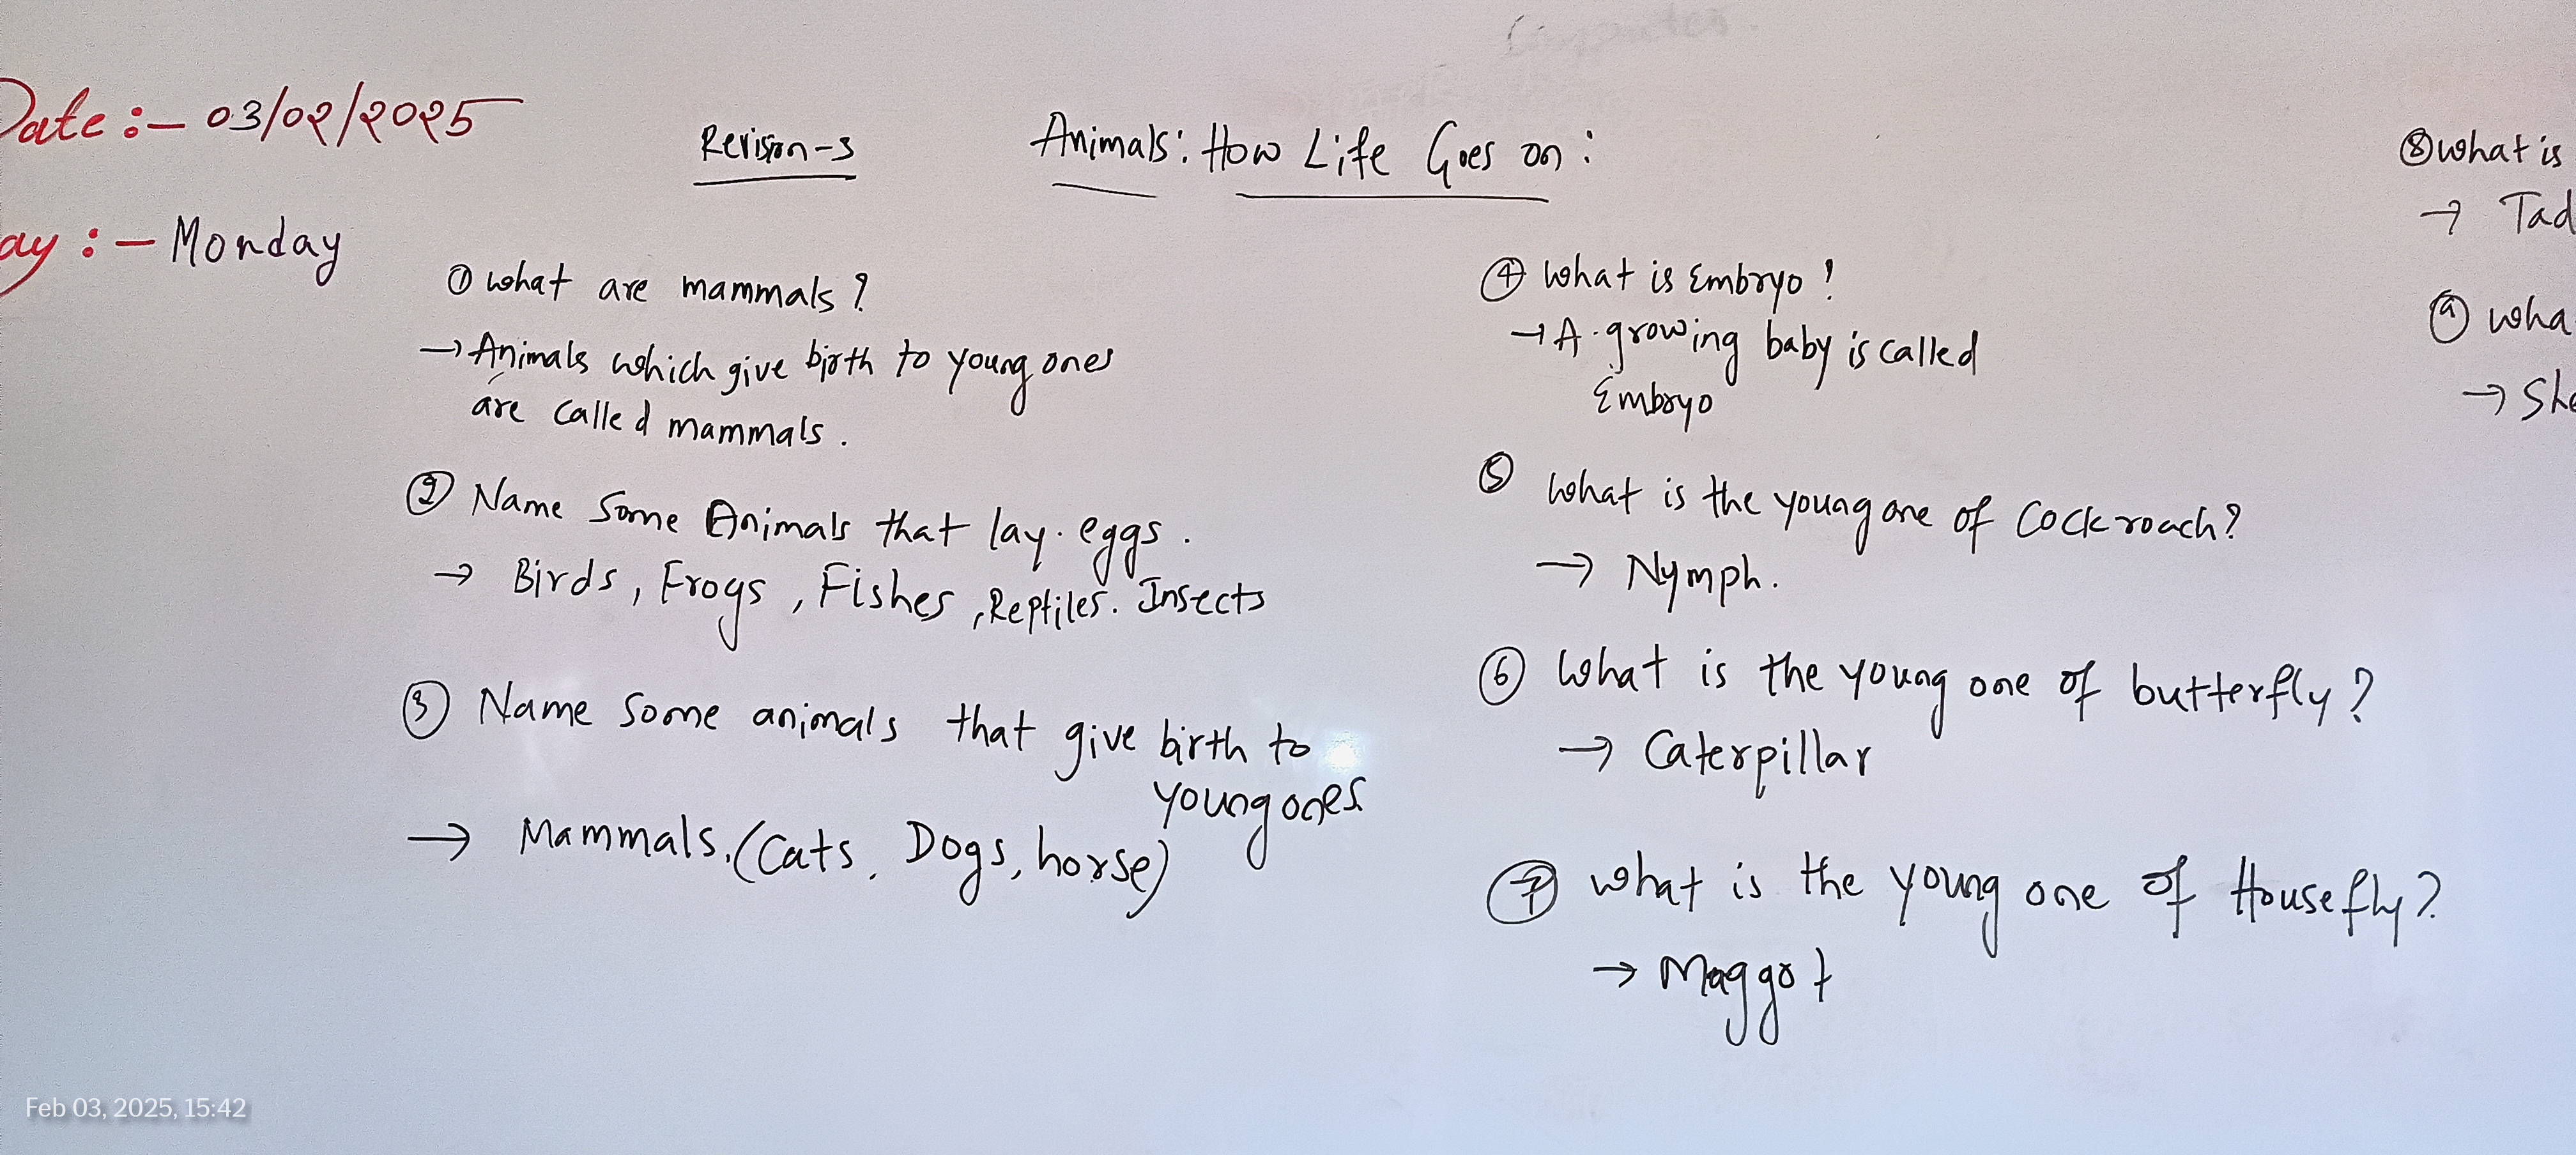 Date :- 03/02/2025
ay :- Monday
Revision-3
Animals: How Life Goes on :
① What are mammals ?
→ Animals which give birth to young ones
are called mammals .
② Name Some Animals that lay eggs .
→ Birds , Frogs , Fishes , Reptiles. Insects
③ Name Some animals that give birth to
young ones
→ Mammals. (Cats, Dogs, horse)
④ What is Embryo ?
→ A growing baby is called
Embryo
⑤ What is the young one of Cockroach?
→ Nymph.
⑥ What is the young one of butterfly ?
→ Caterpillar
⑦ What is the young one of Housefly ?
→ Maggot
⑧ What is
→ Tad
⑨ Wha
→ She
Feb 03, 2025, 15:42